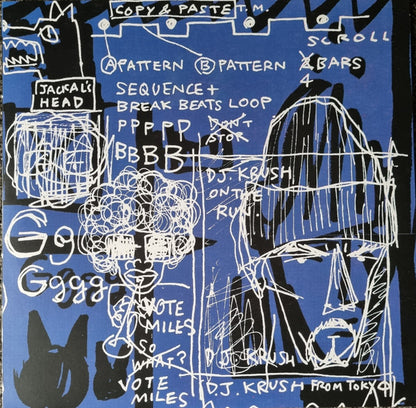 COPY & PASTE T.M.
SCROLL
A PATTERN B PATTERN 2 BARS
4
JACKAL'S
HEAD
SEQUENCE +
BREAK BEATS LOOP
PPPPD DON'T
STOP
BBBB
D.J. KRUSH
ON THE
RUN.
Gg
Gggg
VOTE
MILES
SO
WHAT?
VOTE
MILES
D.J. KRUSH
D.J. KRUSH FROM TOKYO